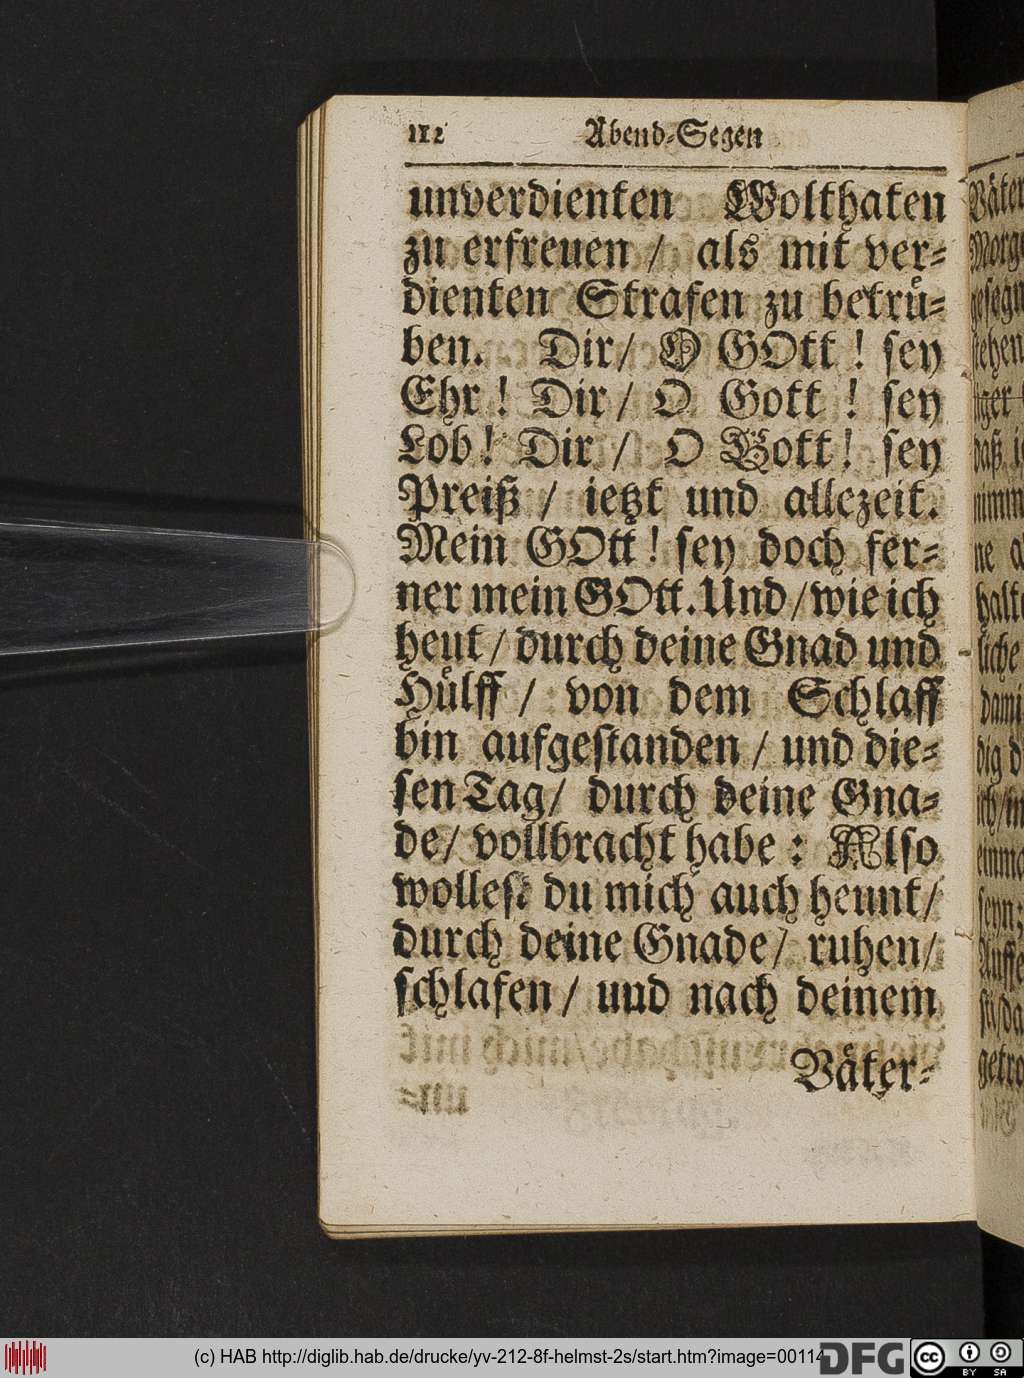 112 Abend-Segen
unverdienten Wolthaten
zu erfreuen / als mit ver-
dienten Strafen zu betruͤ-
ben. Dir / O GOtt ! sey
Ehr ! Dir / O Gott ! sey
Lob ! Dir / O Gott ! sey
Preiß / ietzt und allezeit.
Mein GOtt ! sey doch fer-
ner mein GOtt. Und / wie ich
heut / durch deine Gnad und
Huͤlff / von dem Schlaff
bin aufgestanden / und die-
sen Tag / durch deine Gna-
de / vollbracht habe : Also
wollest du mich auch heunt /
durch deine Gnade / ruhen /
schlafen / und nach deinem
Vaͤter-
(c) HAB http://diglib.hab.de/drucke/yv-212-8f-helmst-2s/start.htm?image=00114
DFG
cc BY SA